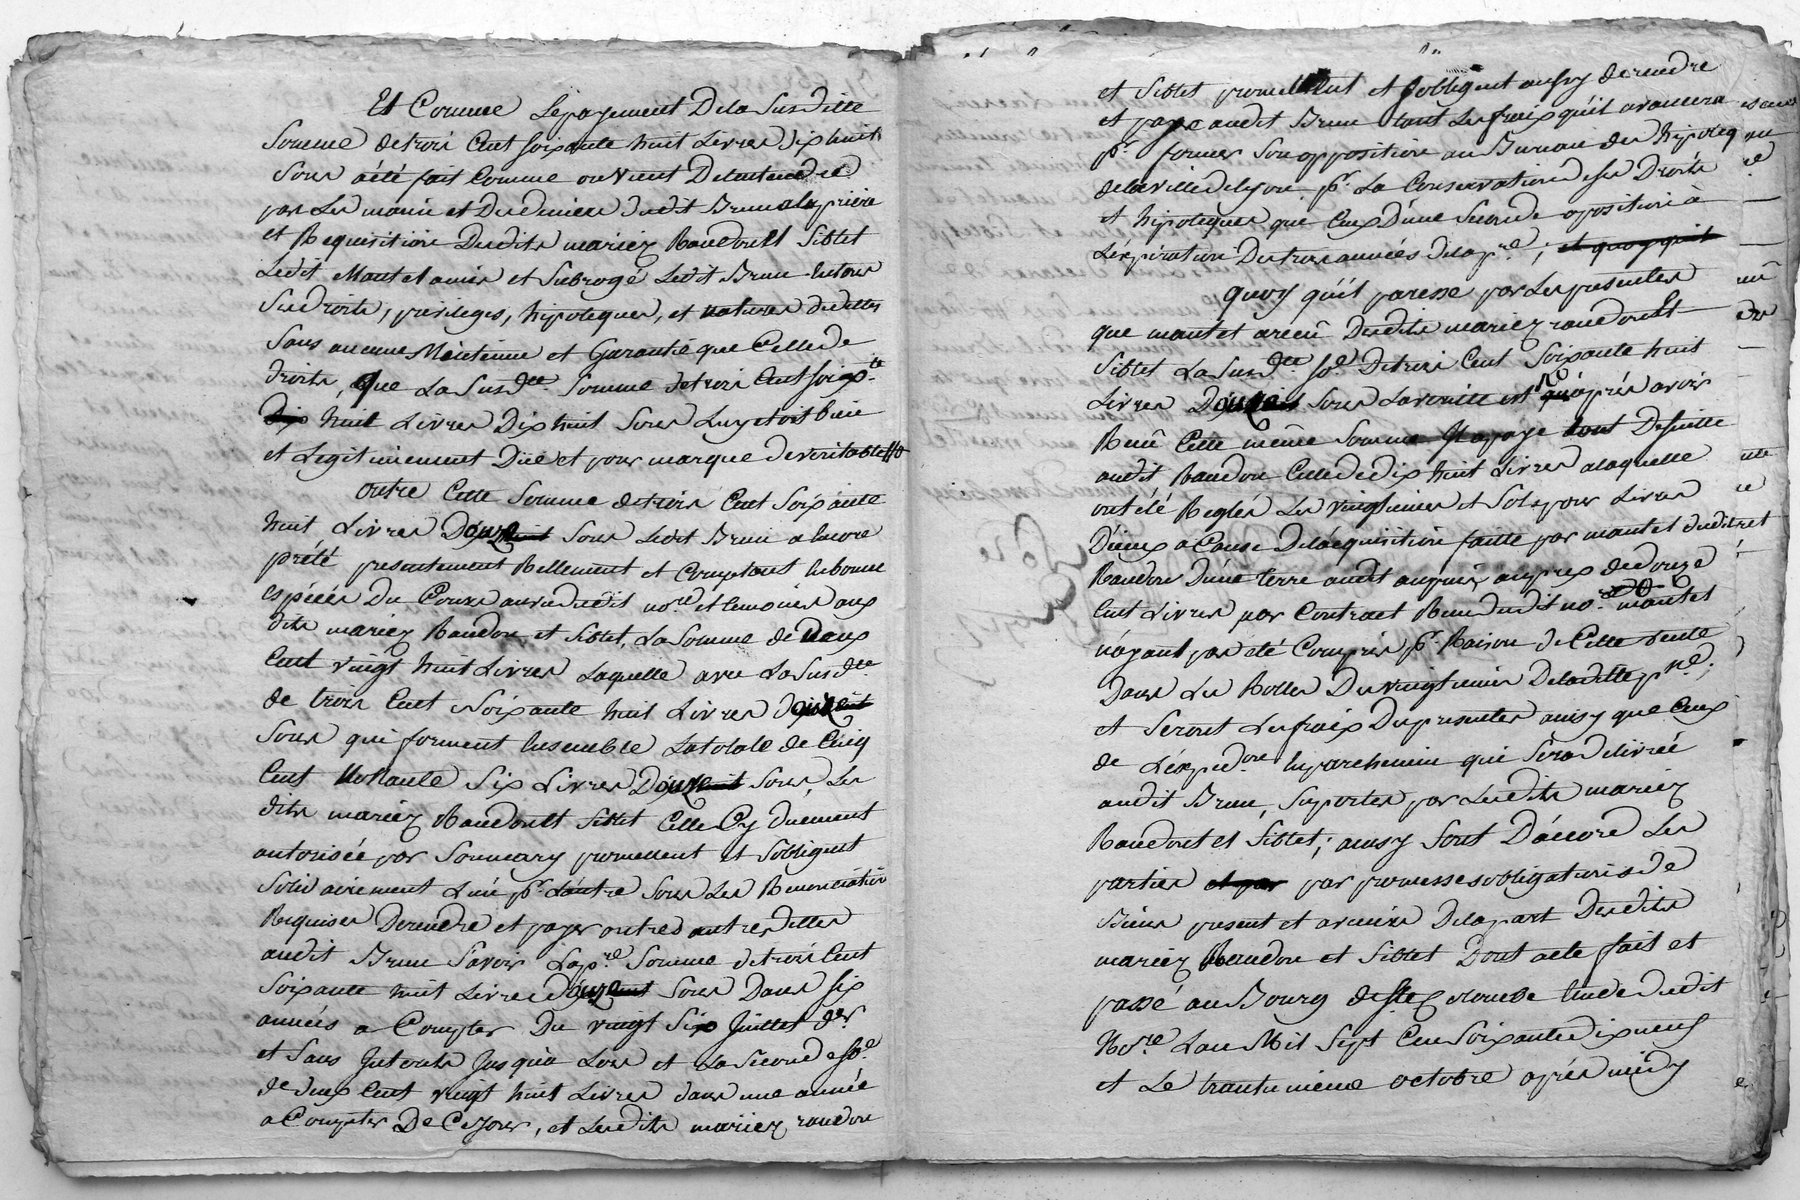 Et Comme Lepayement Dela Susditte
Somme detrois Cent soixante huit Livres Dix huit
Sous aété fait Comme on vient Delentendre
par Les mains et Des deniers dudit Brun alapriere
et Requisition Desdits mariez Baudon et Siblet
Ledit Mantel amis et Subrogé Ledit Brun En tous
Ses droits, privileges, hipoteques, et natures dicelles
Sans aucune Maintenue et Garantie que Celle de
droits, que La Susd.te Somme detrois Cent soix.te
Dix huit Livres Dix huit Sous Luy etoit bien
et Legitimement Düe et pour marque deveritable
outre Cette Somme detrois Cent Soixante
huit Livres Douze Sous Ledit Brun a Encore
prêté presentement Rellement et Comptant Enbonne
espéces Du Cours auvu dudit no.re et temoins aux
dits mariez Baudon et Siblet, La Somme de Deux
Cent vingt huit Livres Laquelle avec La Susd.te
de trois Cent Soixante huit Livres douze
Sous qui forment Ensemble Latotale de Cinq
Cent Nonante Six Livres Douze Sous, Les
dits mariez Baudon et Siblet Celle Cy duement
autorisée par Sonmary promettent et Sobligent
Solidairement L'un p.r Lautre Sous Les Renonciation
Requises Derendre et payer outre autres dittes
audit Brun Savoir Lap.re Somme detrois Cent
Soixante huit Livres douze Sous Dans six
années a Compter Du vingt Six Juillet der.
et Sans Interets Jusqua Lors et La Seconde so.e
de deux Cent vingt huit Livres dans une année
a Compter De Cejour, et Lesdits mariez Baudon
et Siblet promettent et sobligent aussy derendre
et paye audit Brun tout Les fraix qu'il avancera
p.r former Son opposition au Bureau des hipoteq
delaville delyon p.r La Conservation deses Droits
et hipoteques que Ceux D'une Seconde oposition à
L'expiration Des trois années delap.re; et quoy quil
quoy qu'il paresse par Les presentes
que mantel areçu Desdits mariez Baudon Et
Siblet La Susd.te so.e Detrois Cent Soixante huit
Livres Douze Sous Laverité est qu'après avoir
Reçu Cette même Somme Il apaye tout De suitte
audit Baudon Celle de dix huit Livres alaquelle
ont été Reglés Les vingtiemes et Sols pour Livres
D'iceux a Cause Delacquisition faitte par mantel dudit
Baudon D'une terre audit auprix dedouze
Cent Livres par Contract Reçu dudit no.re mantel
n'ayant pas eté Compris p.r Raison de Cette vente
dans Les Rolles Des vingtiemes Deladitte p.sse;
et Seront Les fraix Des presentes aussy que Ceux
de L'exped.on En parchemin qui Sera delivrée
audit Brun, Suportés par Lesdits mariez
Baudon et Siblet; aussy Sont D'acord Les
parties et par par promesses obligations de
Biens present et avenirs Delapart Desdits
mariez Baudon et Siblet Dont acte fait et
passé au Bourg de Ste Colombe Etude dudit
No.re Lan Mil Sept Cens Soixante dix neuf
et Le trantunieme octobre après midy